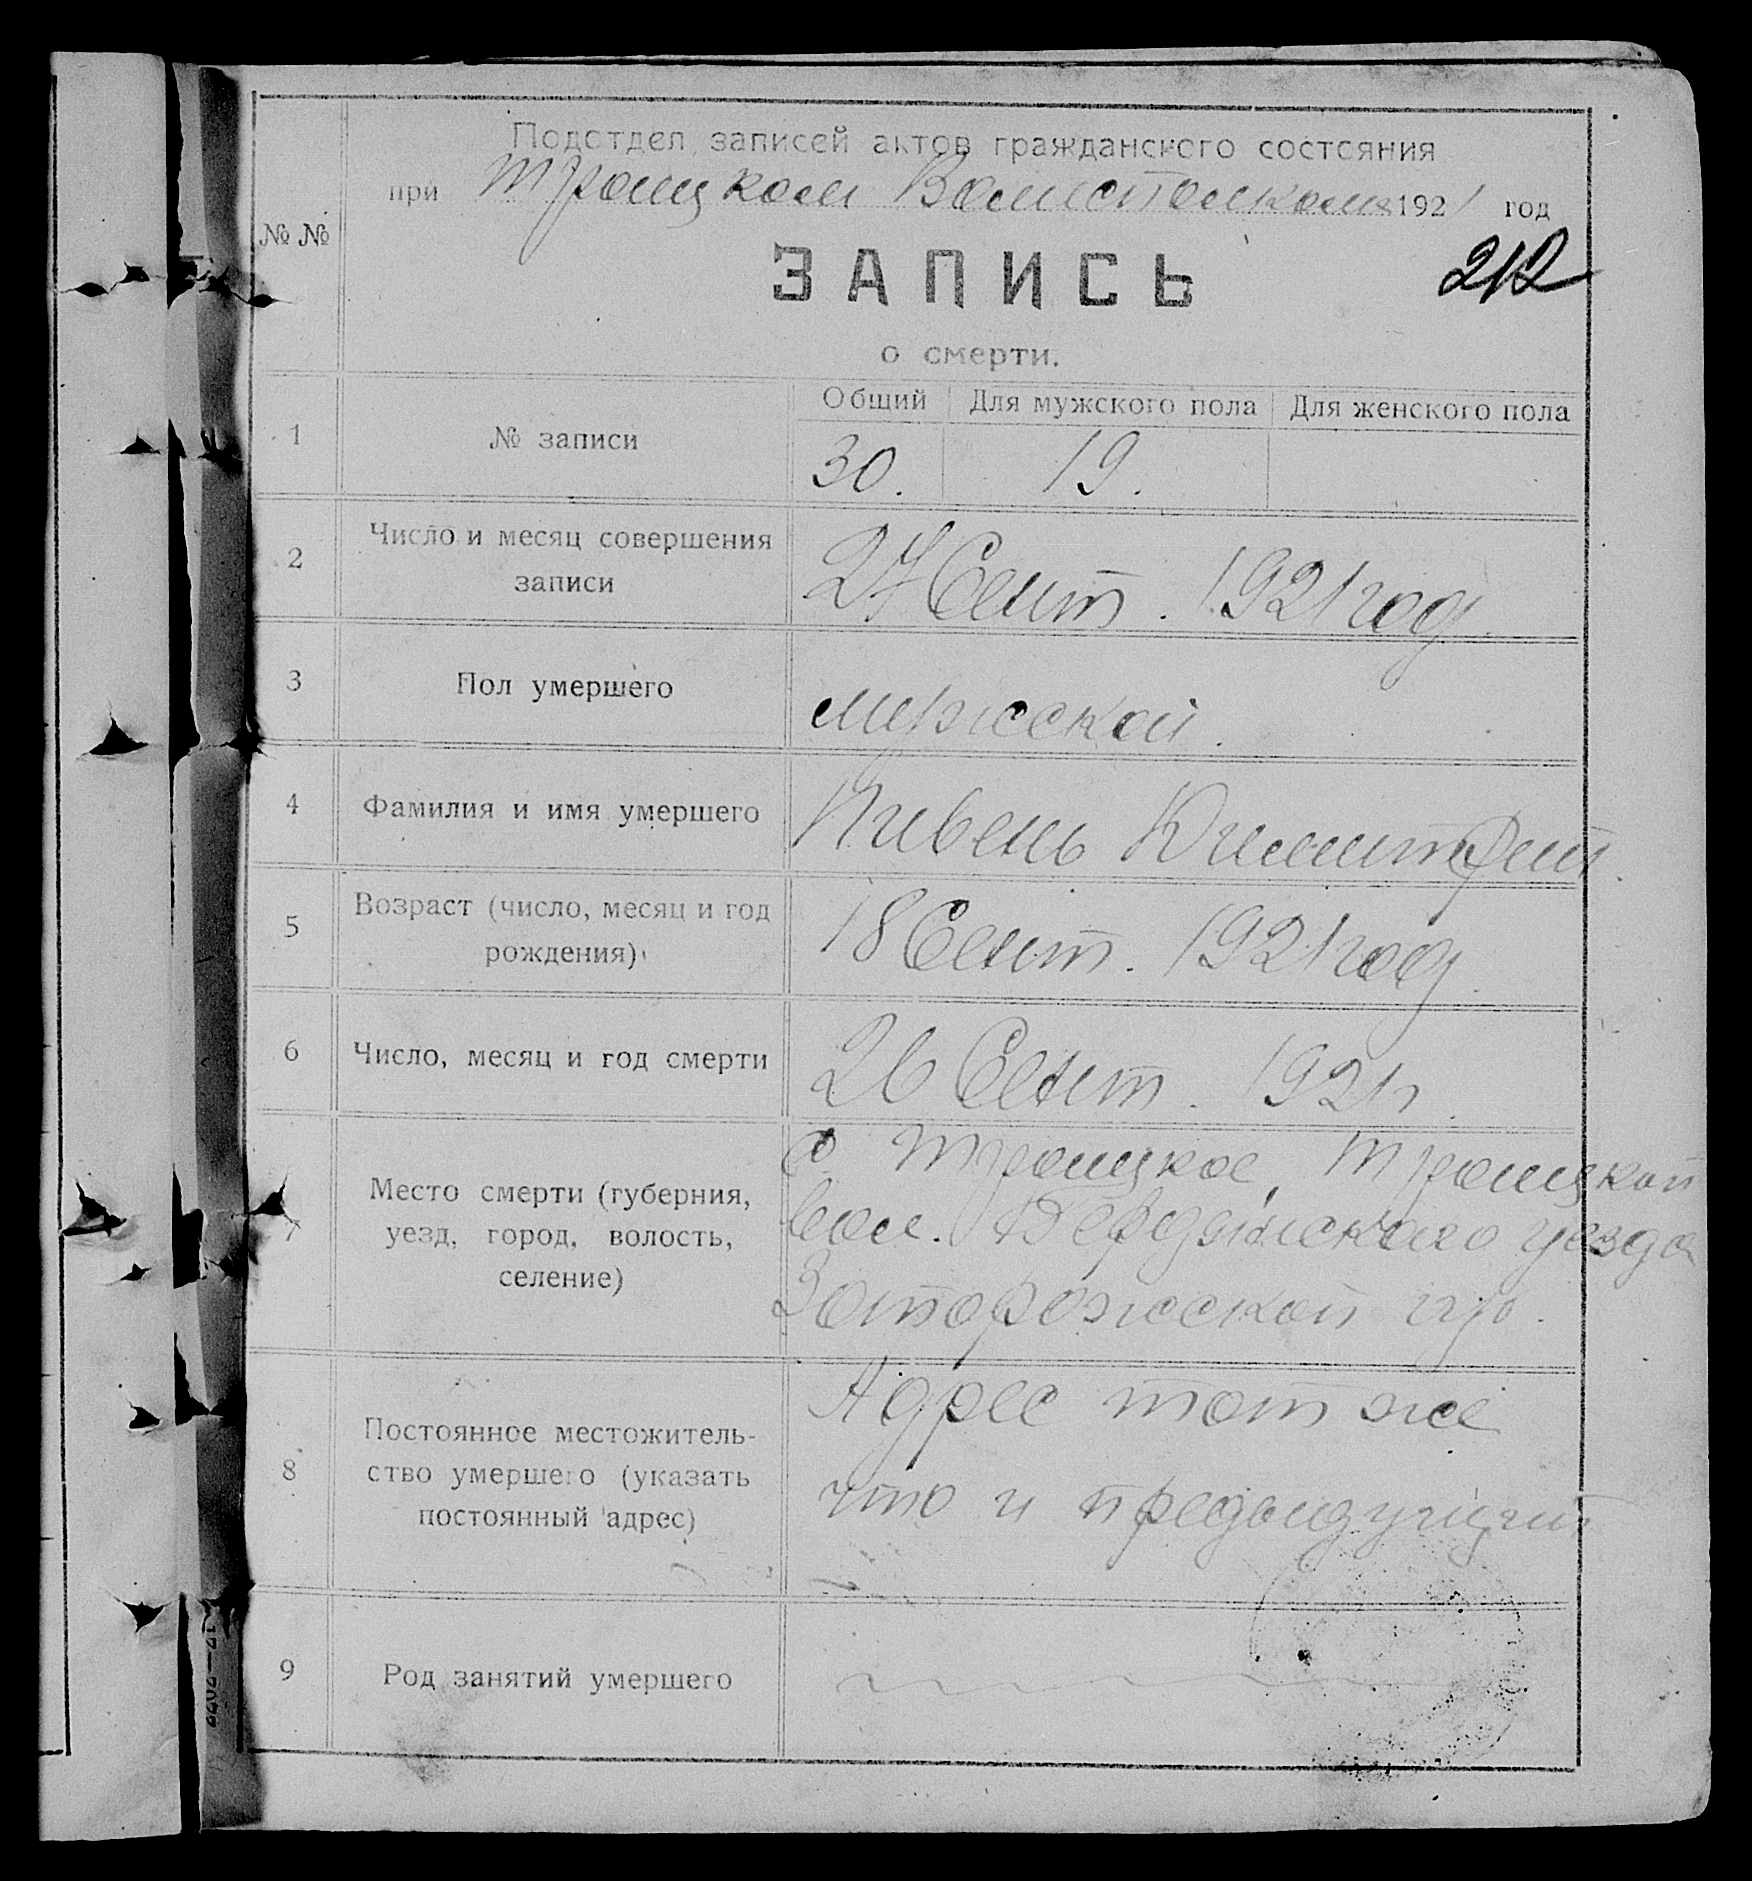 Подотдел записей актов гражданского состояния
при Троицком Волисполкоме 1921 год
№ №
212
ЗАПИСЬ
о смерти.
Общий Для мужского пола Для женского пола
1 № записи 30. 19.
2 Число и месяц совершения
записи
27 Сент. 1921 год.
3 Пол умершего мужской.
4 Фамилия и имя умершего Пивень Димитрий.
5 Возраст (число, месяц и год
рождения)
18 Сент. 1921 год.
6 Число, месяц и год смерти 26 Сент. 1921 г.
7 Место смерти (губерния,
уезд, город, волость,
селение)
с. Троицкое, Троицкой
вол. Бердянского уезда
Запорожской губ.
8 Постоянное местожитель-
ство умершего (указать
постоянный адрес)
Адрес тот же
что и предыдущий
9 Род занятий умершего